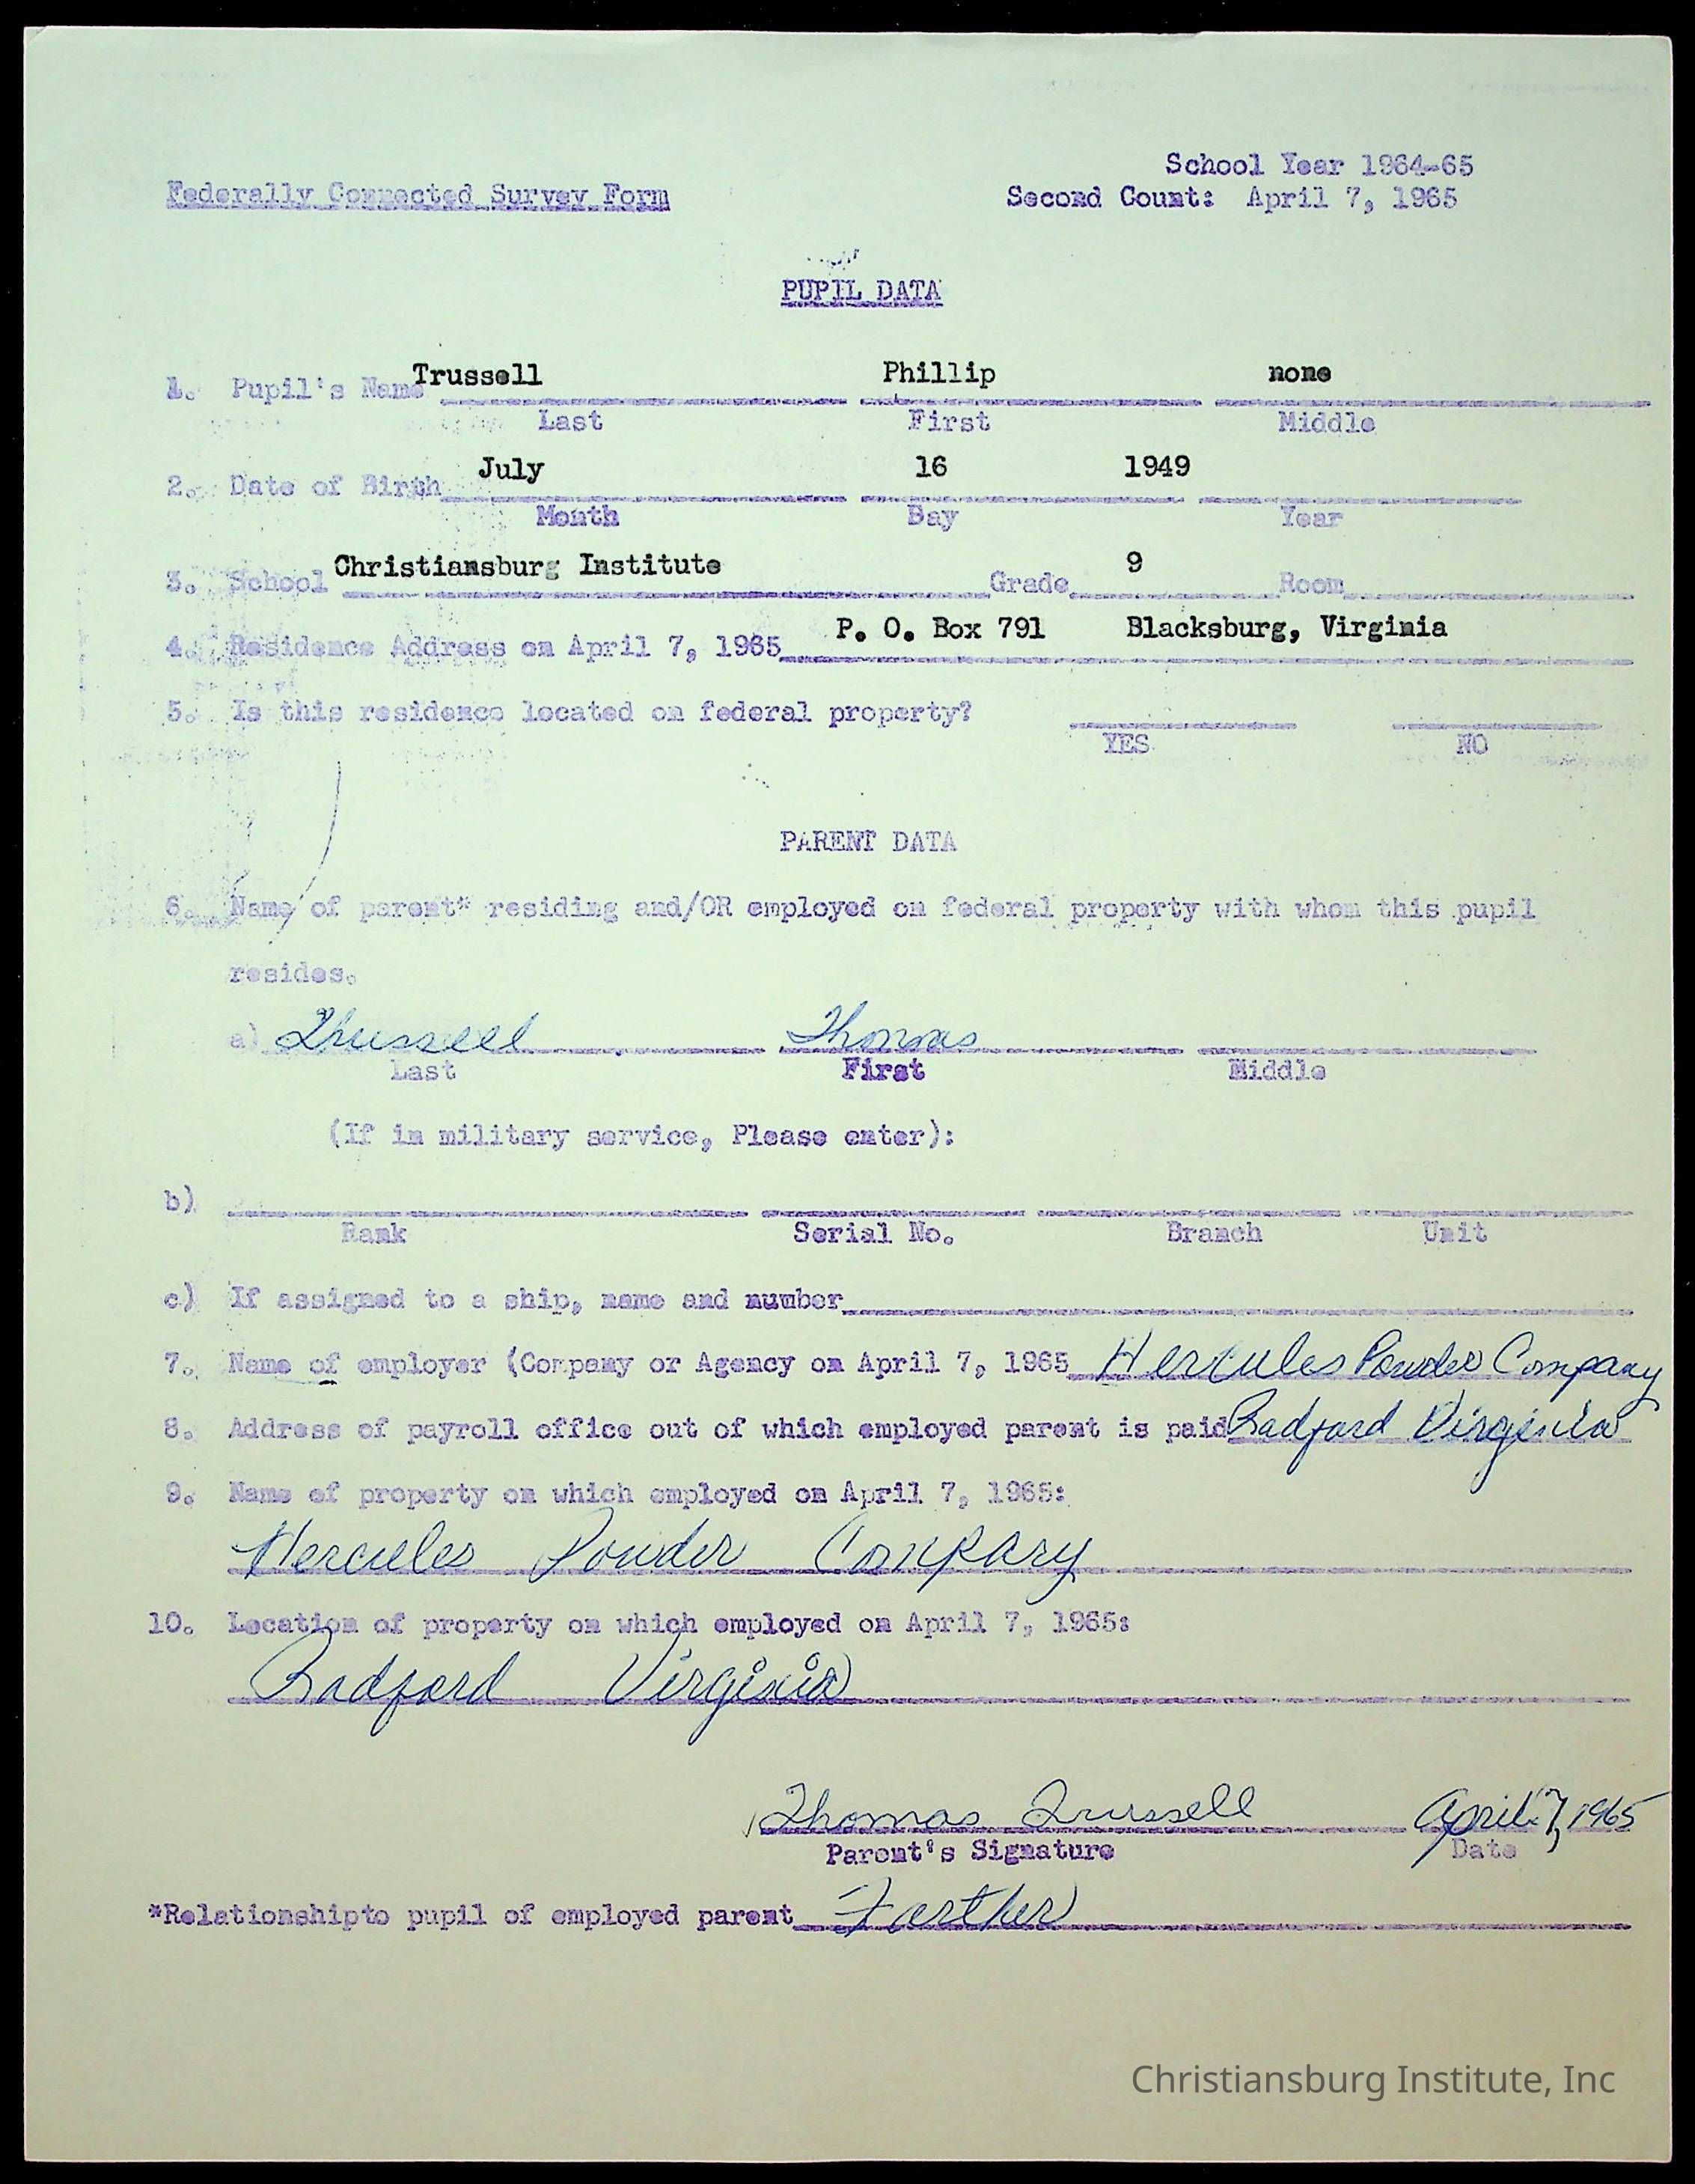 School Year 1964-65
Federally Connected Survey Form Second Count: April 7, 1965
PUPIL DATA
1. Pupil's Name Trussell Phillip none
Last First Middle
2. Date of Birth July 16 1949
Month Day Year
3. School Christiansburg Institute Grade 9 Room
4. Residence Address on April 7, 1965 P. O. Box 791 Blacksburg, Virginia
5. Is this residence located on federal property?
YES NO
PARENT DATA
6. Name of parent* residing and/OR employed on federal property with whom this pupil
resides.
a) Trussell Thomas
Last First Middle
(If in military service, Please enter):
b)
Rank Serial No. Branch Unit
c) If assigned to a ship, name and number
7. Name of employer (Company or Agency on April 7, 1965 Hercules Powder Company
8. Address of payroll office out of which employed parent is paid Radford Virginia
9. Name of property on which employed on April 7, 1965:
Hercules Powder Company
10. Location of property on which employed on April 7, 1965:
Radford Virginia
Thomas Trussell April 7, 1965
Parent's Signature Date
*Relationshipto pupil of employed parent Farther
Christiansburg Institute, Inc